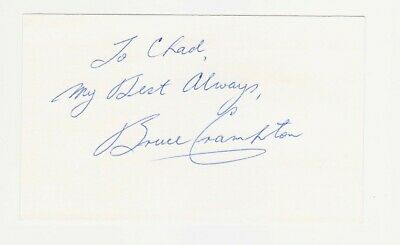 To Chad,
My Best Always,
Bruce Crampton